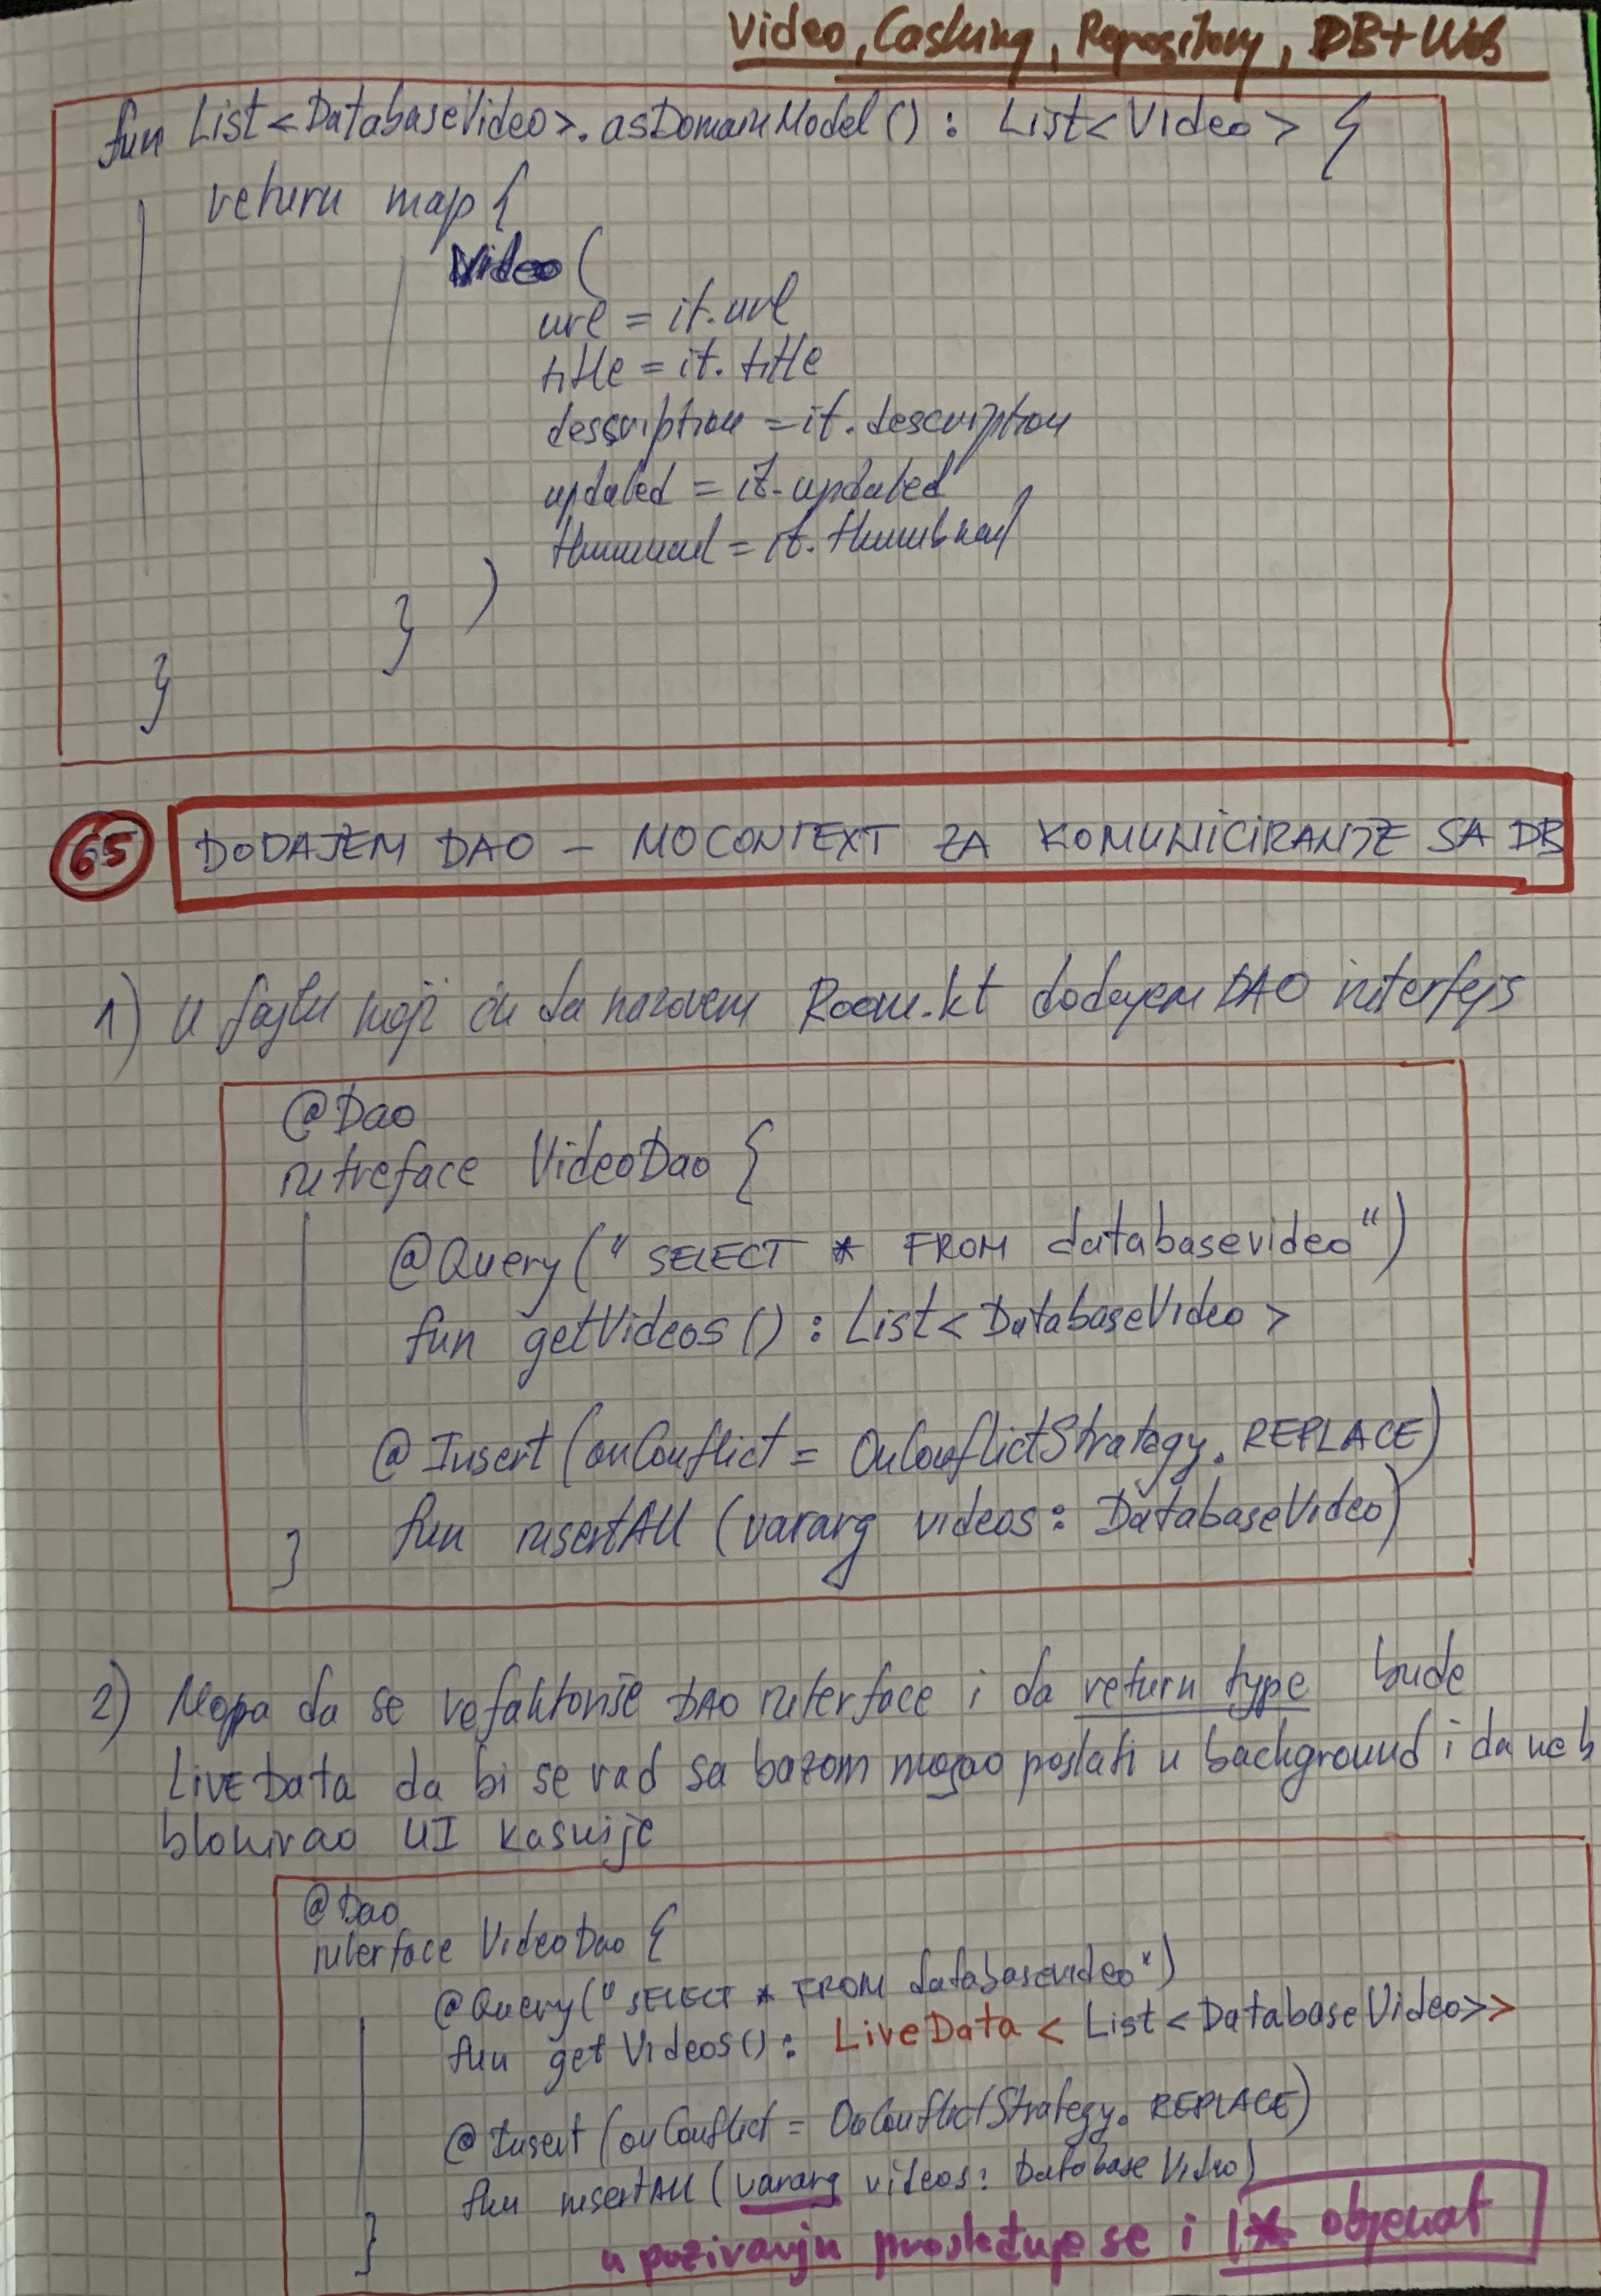 Video, Cashing, Repository, DB+Web
fun List<DatabaseVideo>.asDomainModel() : List<Video> {
return map {
Video (
url = it.url
title = it.title
desscription = it.description
updated = it.updated
thumnail = it.thumbnail
)
}
}
65 DODAJEM DAO - MOCONTEXT ZA KOMUNICIRANJE SA DB
1) U fajlu koji ću da nazovem Room.kt dodajem DAO interfejs
@Dao
intreface VideoDao {
@Query(" SELECT * FROM databasevideo")
fun getVideos() : List<DatabaseVideo>
@Insert (onConflict = OnConflictStrategy. REPLACE)
fun insertAll (vararg videos: DatabaseVideo)
}
2) Mora da se refaktoriše DAO interface i da return type bude
LiveData da bi se rad sa bazom mogao poslati u background i da ne b
blokirao UI kasnije
@Dao
interface VideoDao {
@Query(" SELECT * FROM databasevideo")
fun getVideos() : LiveData < List<DatabaseVideo>>
@Insert (onConflict = OnConflictStrategy. REPLACE)
fun insertAll (vararg videos: DatabaseVideo)
}
u pozivanju prosleđuje se i 1* objekat